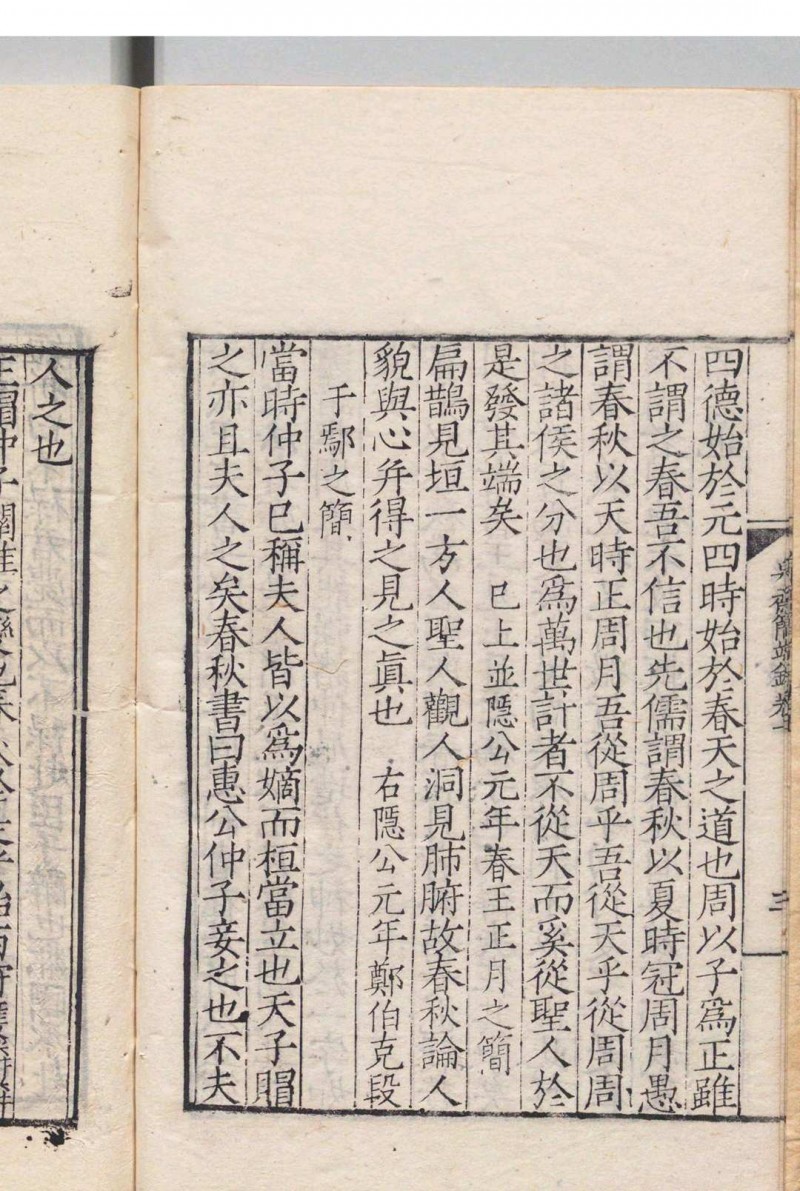 四德始於元四時始於春天之道也周以子爲正雖
不謂之春吾不信也先儒謂春秋以夏時冠周月愚
謂春秋以天時正周月吾從周乎吾從天乎從周周
之諸侯之分也爲萬世計者不從天而奚從聖人於
是發其端矣 已上並隱公元年春王正月之簡
扁鵲見垣一方人聖人觀人洞見肺腑故春秋論人
貌與心幷得之見之眞也 右隱公元年鄭伯克段
于鄢之簡
當時仲子已稱夫人皆以爲嫡而桓當立也天子賵
之亦且夫人之矣春秋書曰惠公仲子妾之也不夫
人之也